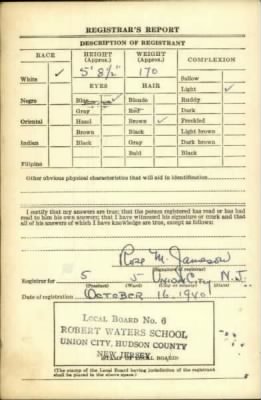 REGISTRAR'S REPORT
DESCRIPTION OF REGISTRANT
RACE HEIGHT (Approx.) WEIGHT (Approx.) COMPLEXION
White ✓ 5' 8½" 170 Sallow
EYES HAIR Light ✓
Negro Blue ✓ Blonde Ruddy
Gray Red Dark
Oriental Hazel Brown ✓ Freckled
Brown Black Light brown
Indian Black Gray Dark brown
Bald Black
Filipino
Other obvious physical characteristics that will aid in identification
I certify that my answers are true; that the person registered has read or has had
read to him his own answers; that I have witnessed his signature or mark and that
all of his answers of which I have knowledge are true, except as follows:
Rose M. Jameson
(Signature of registrar)
Registrar for 5 5 Union City N.J.
(Precinct) (Ward) (City or county) (State)
Date of registration October 16, 1940
LOCAL BOARD No. 6
ROBERT WATERS SCHOOL
UNION CITY, HUDSON COUNTY
NEW JERSEY
STAMP OF LOCAL BOARD
(The stamp of the Local Board having jurisdiction of the registrant
shall be placed in the above space.)